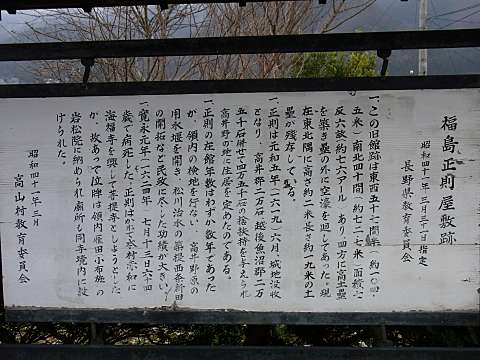 福島正則屋敷跡
昭和四十一年三月三十一日指定
長野県教育委員会
一、この旧館跡は東西五十七間(約一〇四・
五米)南北四十間(約七二・七米)面積七
反六畝(約七六アール)あり四方に高土塁
を築き塁の外に空濠を廻してあった。現
在東北隅に高さ約二米長さ約一九米の土
塁が残存してゐる。
一、正則は元和五年(一六一九)六月城地没収
となり、高井郡二万石越後魚沼郡二万
五千石併せて四万五千石の捨扶持を与えられ
高井野の地に住居を定めたのである。
一、正則の在館年数はわずか数年であった
が、領内の検地を行ない、高井野原の
用水堰を開き、松川治水の築堤西条新田
の開拓など民政に尽した功績が大きい。
一、寛永元年(一六二四年)七月十三日六十四
歳で病死した。正則はかねて木村宗和に
海福寺を興して菩提寺としようとした
が、故あって位牌は領内雁田小布施の
岩松院に納められ廟所も同寺境内に設
けられた。
昭和四十一年三月
高山村教育委員会